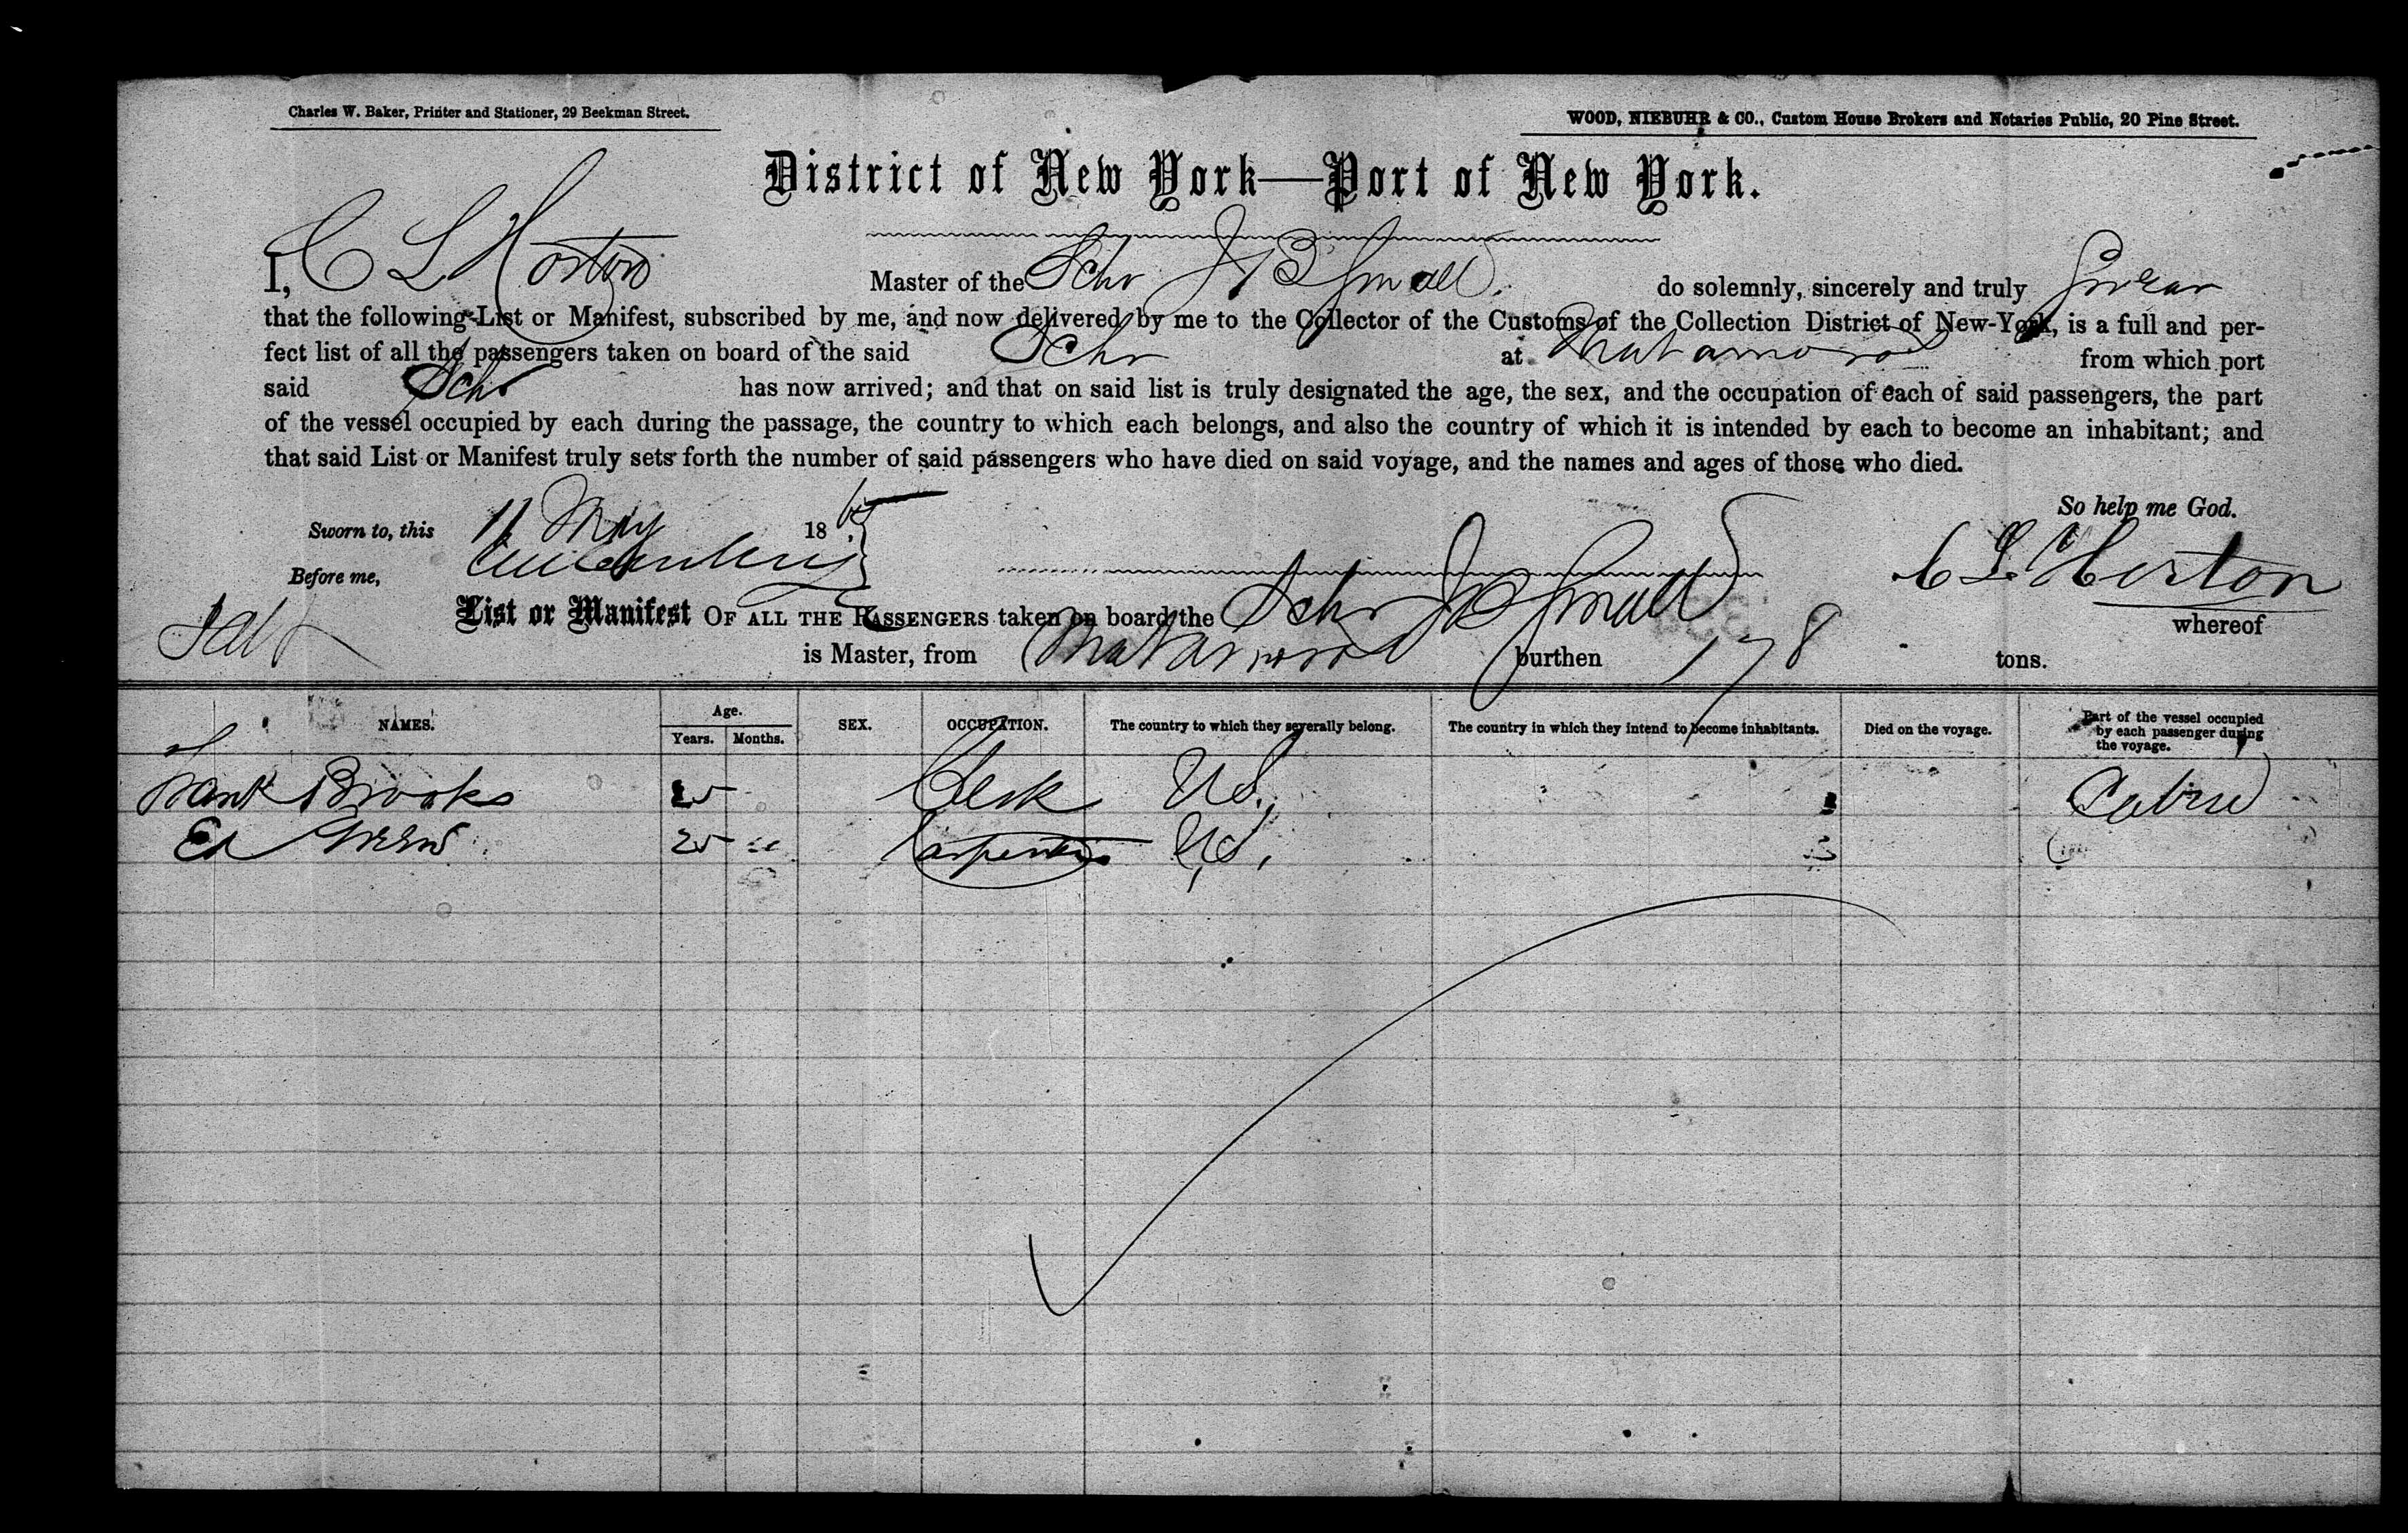 Charles W. Baker, Printer and Stationer, 29 Beekman Street.
WOOD, NIEBUHR & CO., Custom House Brokers and Notaries Public, 20 Pine Street.
District of New York—Port of New York.
I, C L Horton Master of the Schr J B Small do solemnly, sincerely and truly Swear
that the following List or Manifest, subscribed by me, and now delivered by me to the Collector of the Customs of the Collection District of New-York, is a full and per-
fect list of all the passengers taken on board of the said Schr at Matamoros from which port
said Schr has now arrived; and that on said list is truly designated the age, the sex, and the occupation of each of said passengers, the part
of the vessel occupied by each during the passage, the country to which each belongs, and also the country of which it is intended by each to become an inhabitant; and
that said List or Manifest truly sets forth the number of said passengers who have died on said voyage, and the names and ages of those who died.
So help me God.
Sworn to, this 11 May 1865
Before me,
C L Horton
List or Manifest OF ALL THE PASSENGERS taken on board the Schr J B Small whereof
is Master, from Matamoros burthen 178 tons.
NAMES. Age. Years. Months. SEX. OCCUPATION. The country to which they severally belong. The country in which they intend to become inhabitants. Died on the voyage. Part of the vessel occupied by each passenger during the voyage.
Frank Brooks 25 Clerk U S. Cabin
Ed Green 25 Carpenter U S.